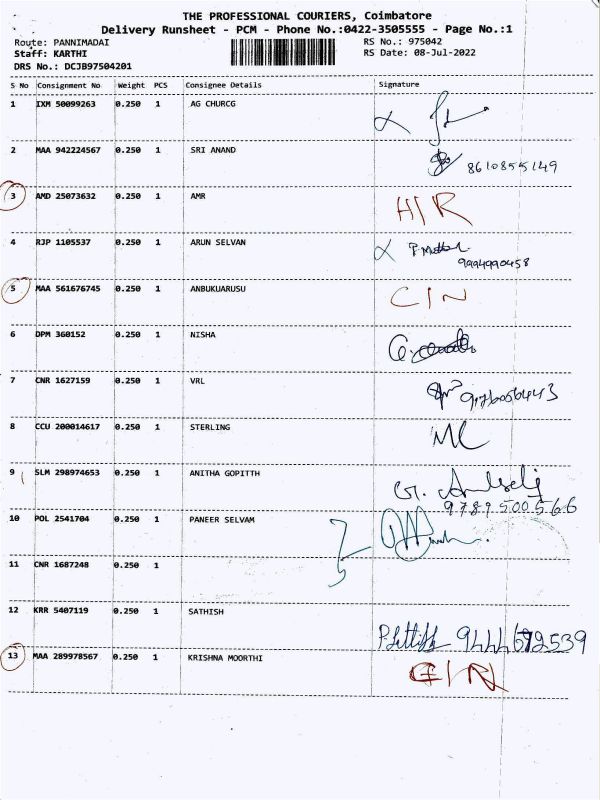 THE PROFESSIONAL COURIERS, Coimbatore
Delivery Runsheet - PCM - Phone No.:0422-3505555 - Page No.:1
Route: PANNIMADAI RS No.: 975042
Staff: KARTHI RS Date: 08-Jul-2022
DRS No.: DCJB97504201
S No Consignment No Weight PCS Consignee Details Signature
1 IXM 50099263 0.250 1 AG CHURCG
2 MAA 942224567 0.250 1 SRI ANAND
8610855149
3 AMD 25073632 0.250 1 AMR H/R
4 RJP 1105537 0.250 1 ARUN SELVAN
9994990458
5 MAA 561676745 0.250 1 ANBUKUARUSU C/N
6 DPM 360152 0.250 1 NISHA
7 CNR 1627159 0.250 1 VRL
8 CCU 200014617 0.250 1 STERLING
9 SLM 298974653 0.250 1 ANITHA GOPITTH
9787500566
10 POL 2541704 0.250 1 PANEER SELVAM
11 CNR 1687248 0.250 1
12 KRR 5407119 0.250 1 SATHISH
13 MAA 289978567 0.250 1 KRISHNA MOORTHI